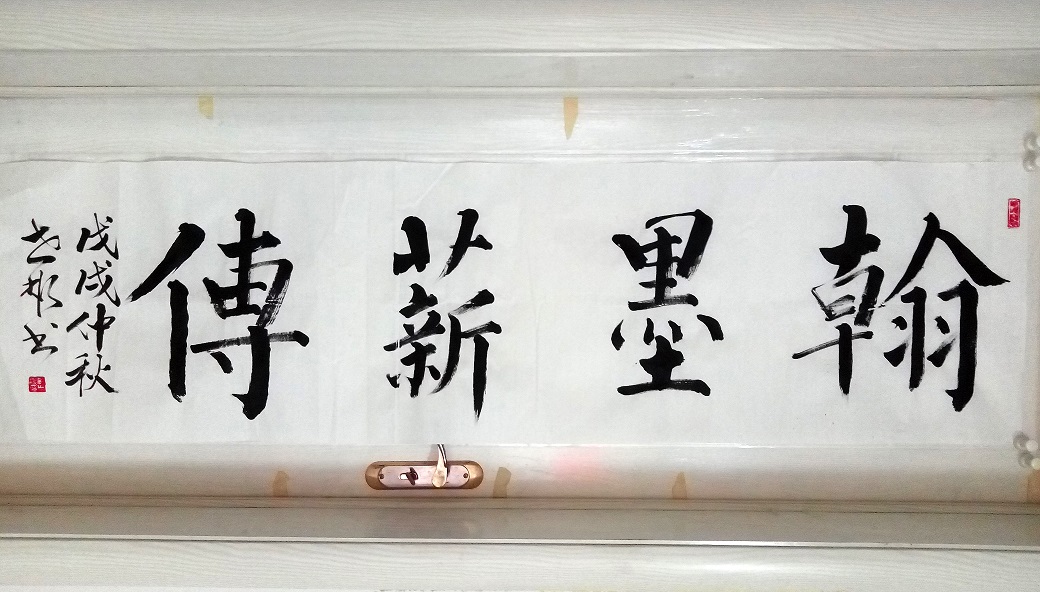 翰墨薪傳
戊戌仲秋
世彬书